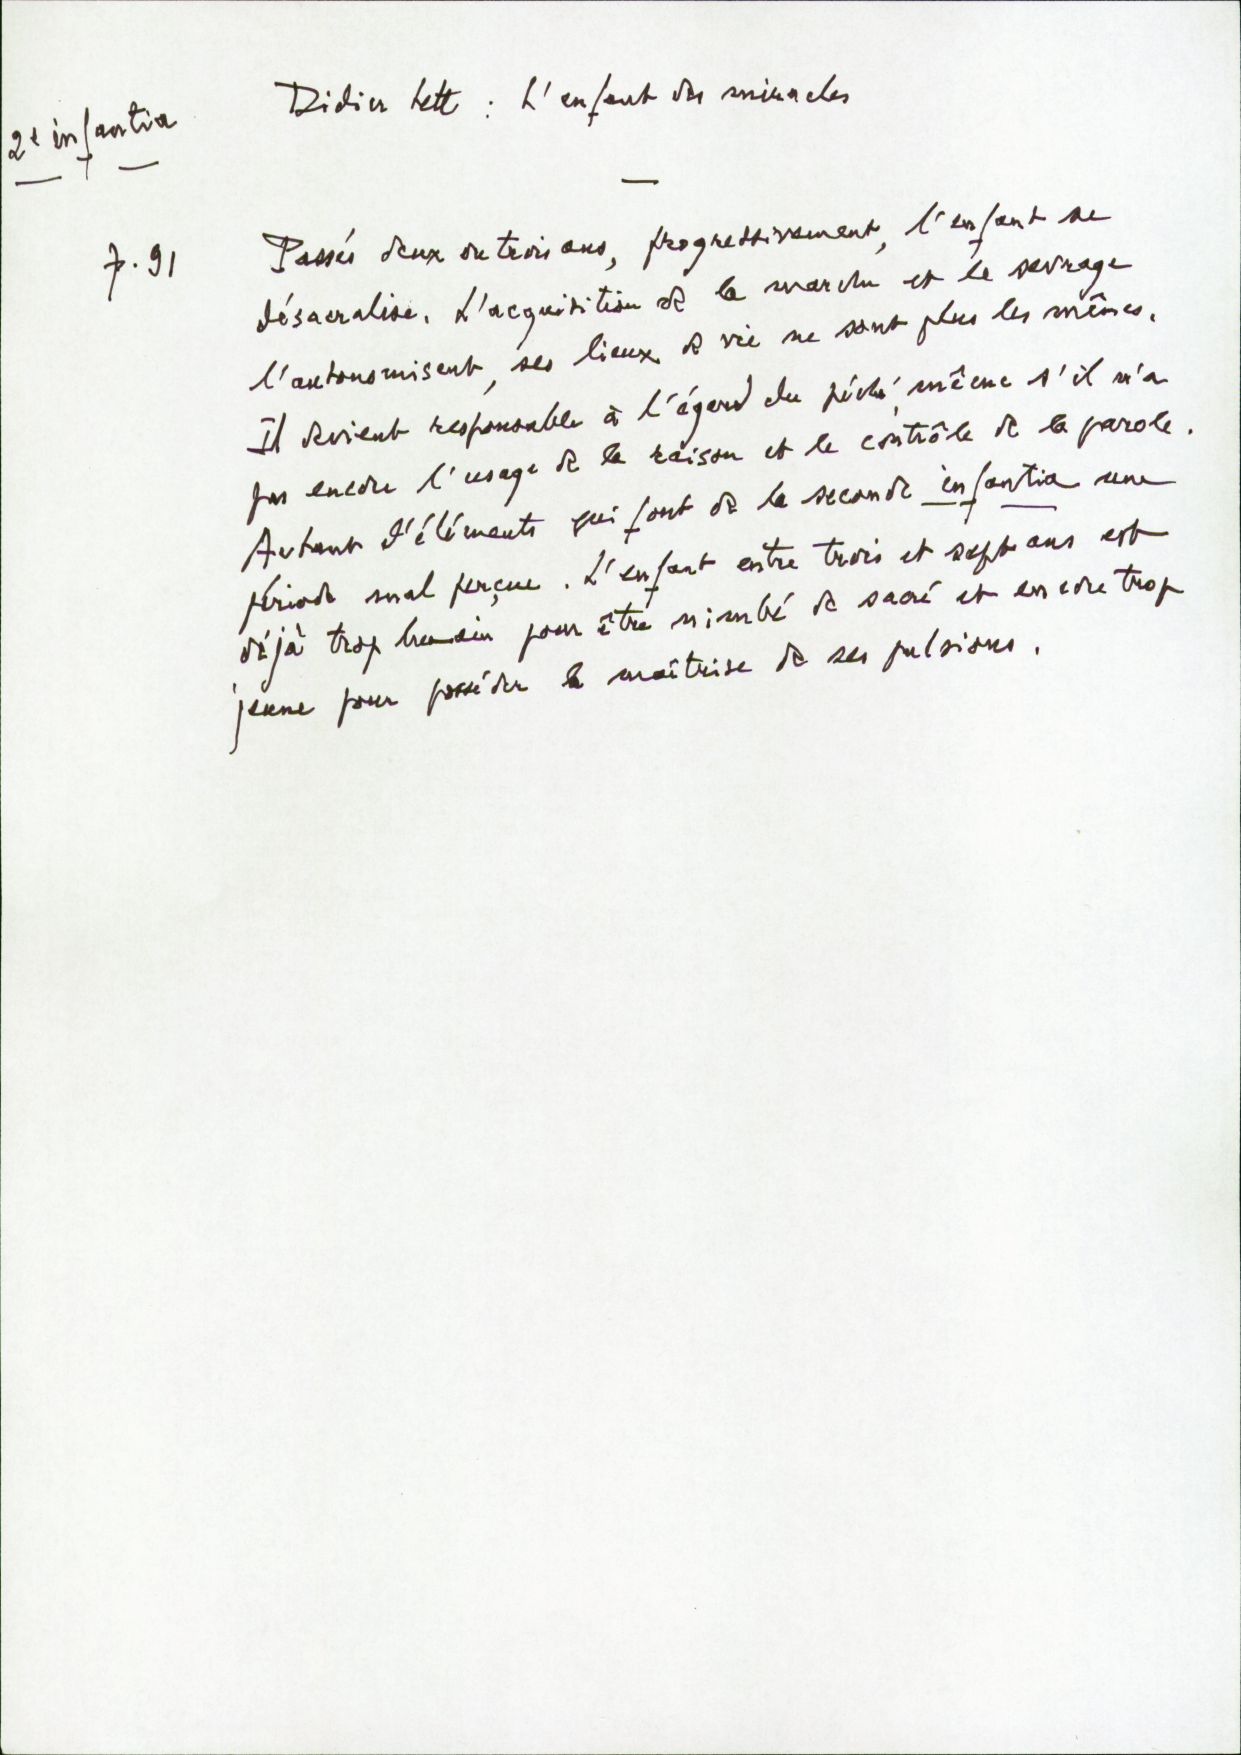 Didier Lett : L'enfant des miracles
2e infantia
p. 91
Passés deux ou trois ans, progressivement, l'enfant se
désacralise. L'acquisition de la marche et le sevrage
l'autonomisent, ses lieux de vie ne sont plus les mêmes.
Il devient responsable à l'égard du péché même s'il n'a
pas encore l'usage de la raison et le contrôle de la parole.
Autant d'éléments qui font de la seconde infantia une
période mal perçue. L'enfant entre trois et sept ans est
déjà trop humain pour être nimbé de sacré et encore trop
jeune pour posséder la maîtrise de ses pulsions.